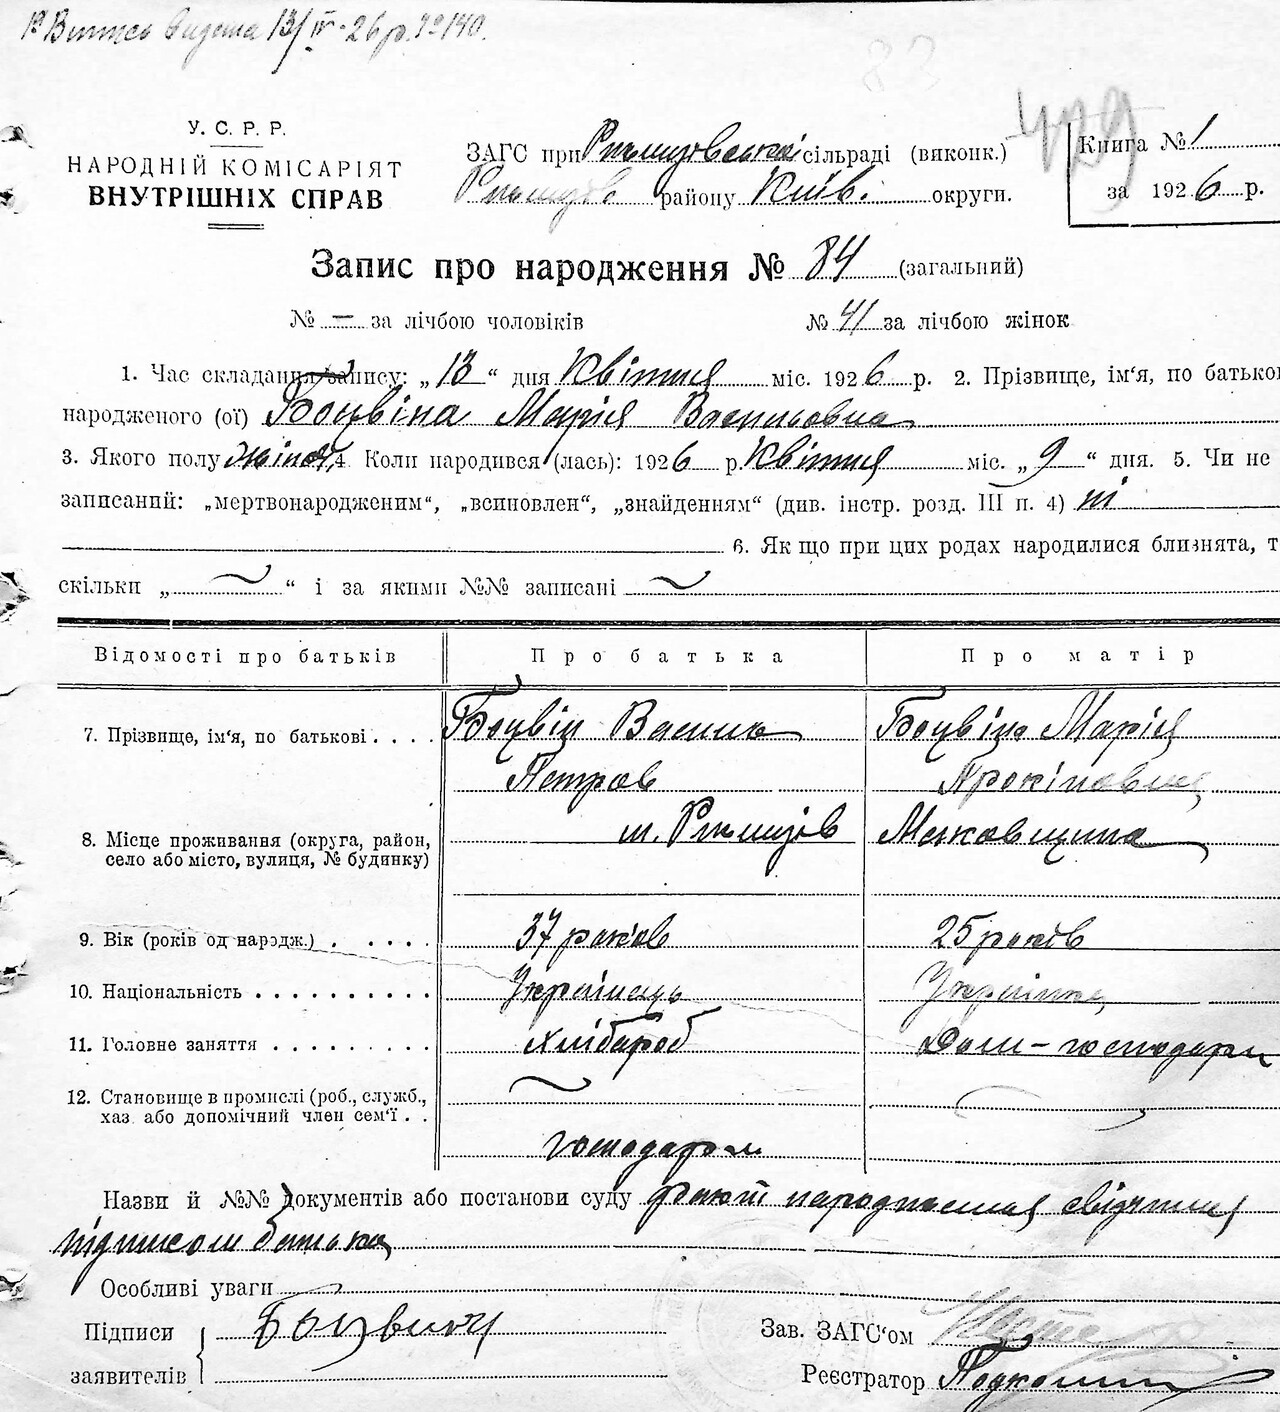 1º Витяг видана 13/IV-26 р. № 140.
83
429
У. С. Р. Р.
НАРОДНІЙ КОМІСАРІЯТ
ВНУТРІШНІХ СПРАВ
ЗАГС при Ржищовській сільраді (виконк.)
Ржищів району Київ. округи.
Книга № 1
за 1926 р.
Запис про народження № 84 (загальний)
№ — за лічбою чоловіків № 41 за лічбою жінок
1. Час складання запису: „13“ дня Квітня міс. 1926 р. 2. Прізвище, ім‘я, по батькові
народженого (ої) Боцвіна Марія Васильовна
3. Якого полу жіноч. 4. Коли народився (лась): 1926 р. Квітня міс. „9“ дня. 5. Чи не
записаний: „мертвонародженим“, „всиновлен“, „знайденням“ (див. інстр. розд. III п. 4) ні
6. Як що при цих родах народилися близнята, т
скільки „ ~ “ і за якими №№ записані ~
Відомості про батьків Про батька Про матір
7. Прізвище, ім‘я, по батькові . . . . Боцвін Василь Боцвіна Марія
Петров Прокіповна
8. Місце проживання (округа, район,
село або місто, вулиця, № будинку) м. Ржищів
9. Вік (років од народж.) . . . . . 37 років 25 років
10. Національність . . . . . . . . . . Українець Українка
11. Головне заняття . . . . . . . . . Хлібороб Дом-господарк
12. Становище в промислі (роб., служб.,
хаз або допомічний член сем‘ї . . ~
господарем
Назви й №№ документів або постанови суду факт народження свідчится
підписом батька
Особливі уваги
Підписи Боцвин
заявителів
Зав. ЗАГС‘ом
Реєстратор